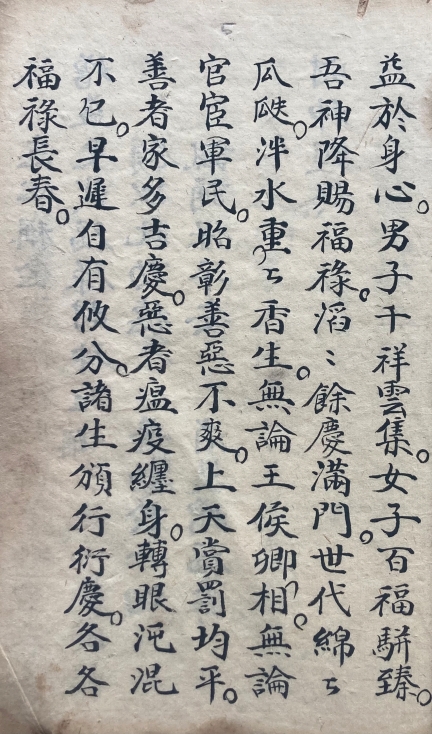 益於身心。男子千祥雲集。女子百福駢臻。
吾神降賜福祿。滔〻餘慶滿門。世代綿〻
瓜瓞。泮水重〻香生。無論王侯卿相。無論
官宦軍民。昭彰善惡不爽。上天賞罰均平。
善者家多吉慶。惡者瘟疫纏身。轉眼沌混
不已。早遲自有攸分。諸生頒行衍慶。各各
福祿長春。